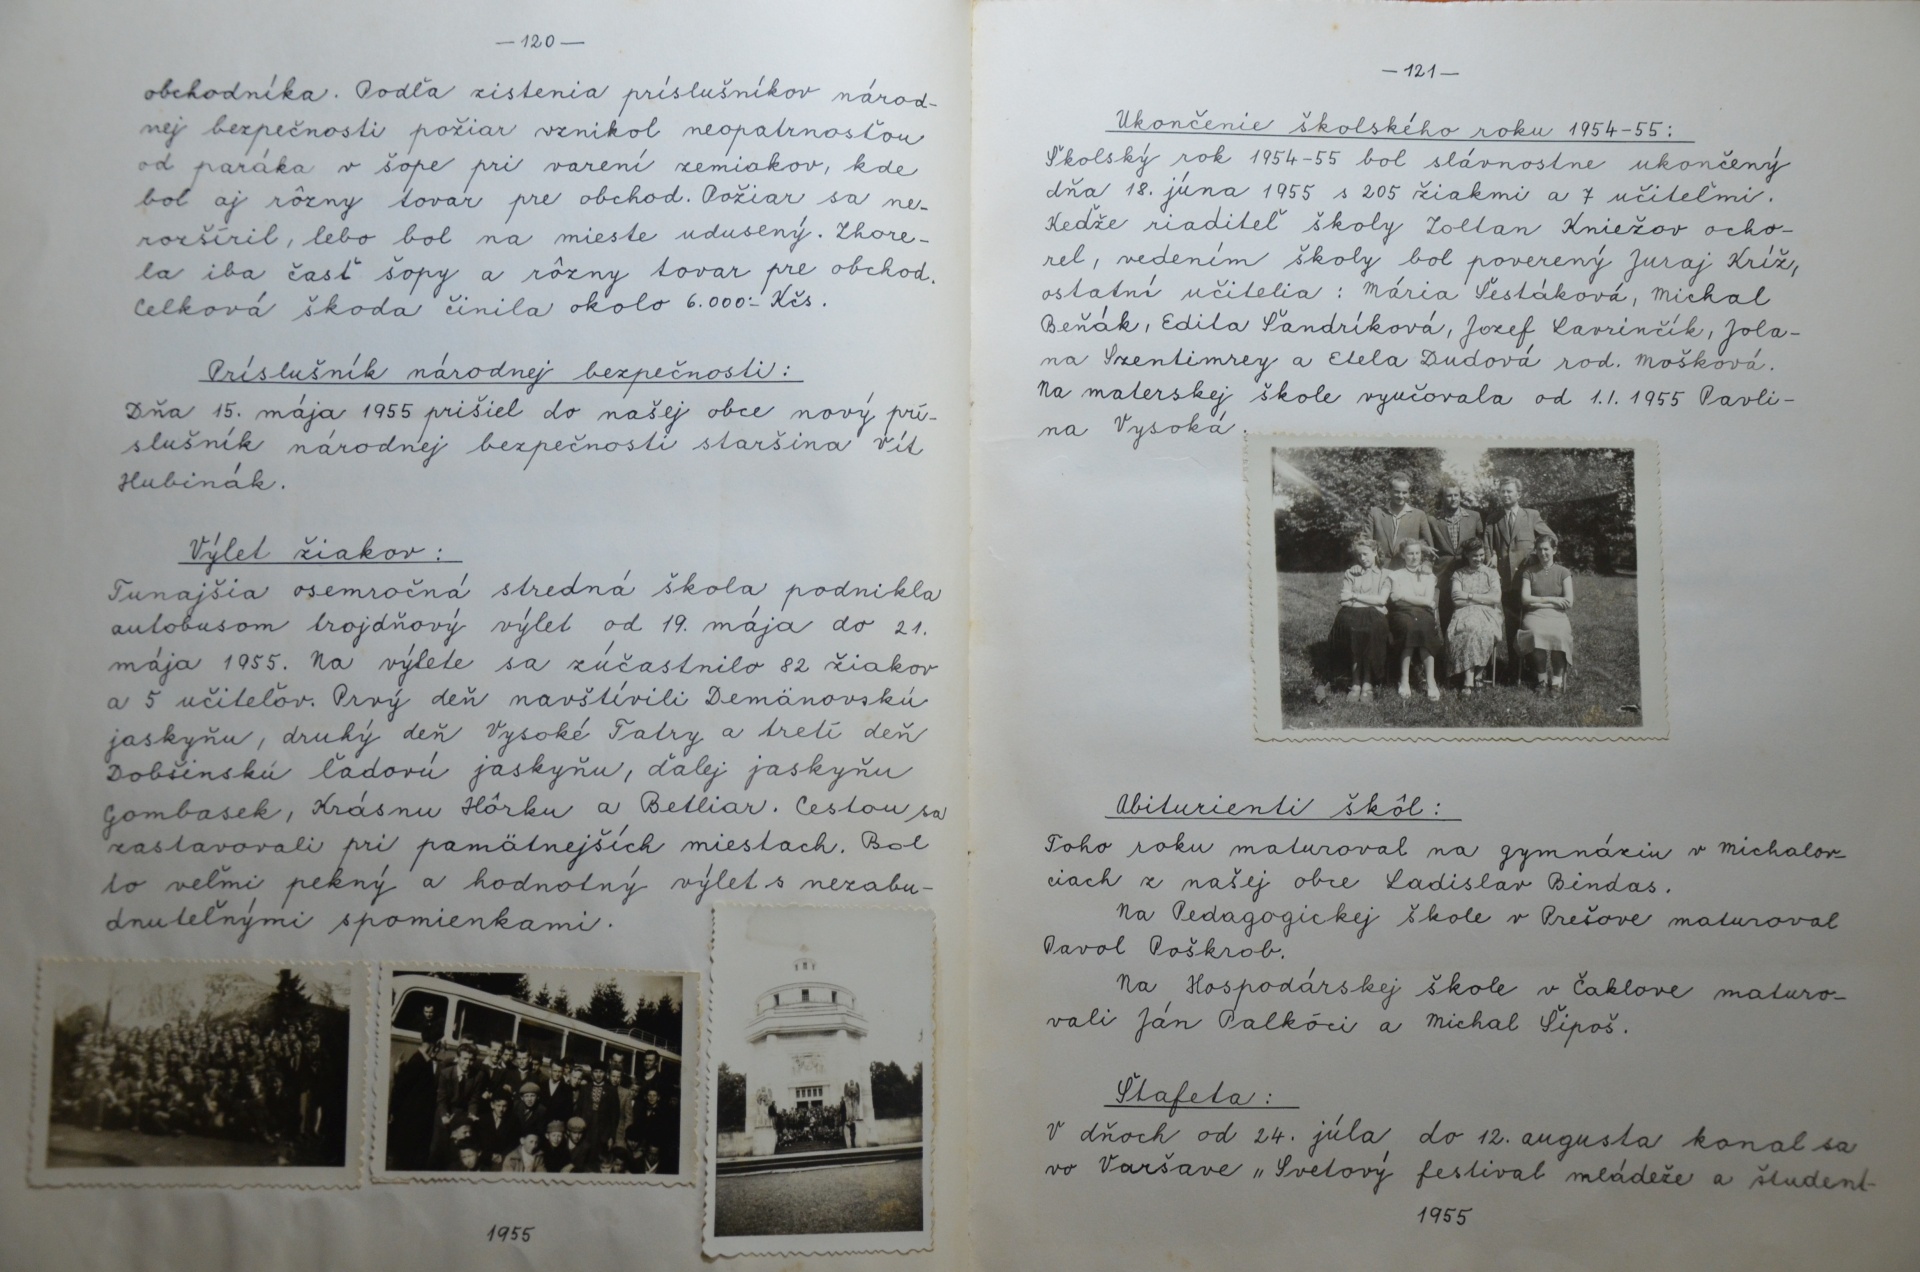 —120—
obchodníka. Podľa zistenia príslušníkov národ-
nej bezpečnosti požiar vznikol neopatrnosťou
od paráka v šope pri varení zemiakov, kde
bol aj rôzny tovar pre obchod. Požiar sa ne-
rozšíril, lebo bol na mieste udusený. Zhore-
la iba časť šopy a rôzny tovar pre obchod.
Celková škoda činila okolo 6.000.- Kčs.
Príslušník národnej bezpečnosti:
Dňa 15. mája 1955 prišiel do našej obce nový prí-
slušník národnej bezpečnosti staršina Vít
Hubinák.
Výlet žiakov:
Tunajšia osemročná stredná škola podnikla
autobusom trojdňový výlet od 19. mája do 21.
mája 1955. Na výlete sa zúčastnilo 82 žiakov
a 5 učiteľov. Prvý deň navštívili Demänovskú
jaskyňu, druhý deň Vysoké Tatry a tretí deň
Dobšinskú ľadovú jaskyňu, ďalej jaskyňu
Gombasek, Krásnu Hôrku a Betliar. Cestou sa
zastavovali pri pamätnejších miestach. Bol
to veľmi pekný a hodnotný výlet s nezabu-
dnuteľnými spomienkami.
1955
—121—
Ukončenie školského roku 1954-55:
Školský rok 1954-55 bol slávnostne ukončený
dňa 18. júna 1955 s 205 žiakmi a 7 učiteľmi.
Keďže riaditeľ školy Zoltan Kniežov ocho-
rel, vedením školy bol poverený Juraj Kríž,
ostatní učitelia: Mária Šestáková, Michal
Beňák, Edita Šandríková, Jozef Lavrinčík, Jola-
na Szentimrey a Etela Dudová rod. Mošková.
Na materskej škole vyučovala od 1.1. 1955 Pavli-
na Vysoká.
Abiturienti škôl:
Toho roku maturoval na gymnáziu v Michalov-
ciach z našej obce Ladislav Bindas.
Na Pedagogickej škole v Prešove maturoval
Pavol Poškrob.
Na Hospodárskej škole v Čaklove maturo-
vali Ján Palkóci a Michal Šipoš.
Štafeta:
V dňoch od 24. júla do 12. augusta konal sa
vo Varšave „Svetový festival mládeže a študent-
1955